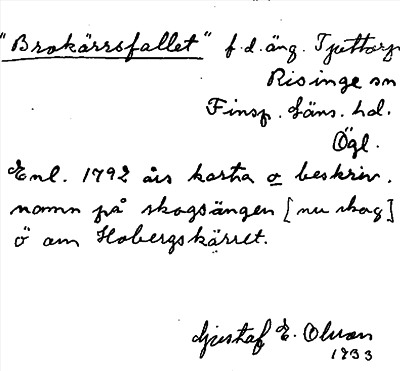 "Brokärrsfallet" f.d. äng. Tjuttorp
Risinge sn
Finsp. läns. hd.
Ögl.
Enl. 1792 års karta o beskriv.
namn på skogsängen [nu skog]
ö om Hobergskärret.
Gustaf E. Olsson
1933